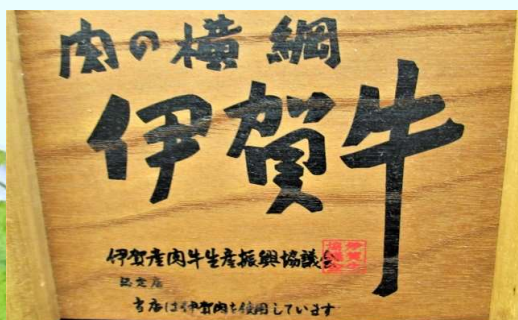 肉の横綱
伊賀牛
伊賀産肉牛生産振興協議会
認定店
当店は伊賀肉を使用しています